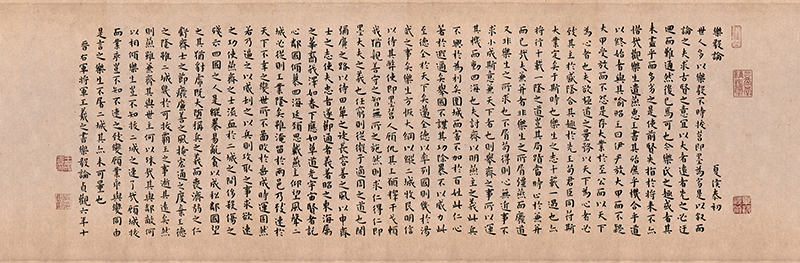 樂毅論
夏侯泰初
世人多以樂毅不時拔莒即墨為劣是以敘而
論之夫求古賢之意宜以大者遠者先之必迂
迴而難通然後已焉可也今樂氏之趣或者其
未盡乎而多劣之是使前賢失指於將來不亦
惜哉觀樂生遺燕惠王書其殆庶乎機合乎道
以終始者與其喻昭王曰伊尹放大甲而不疑
大甲受放而不怨是存大業於至公而以天下
為心者也夫欲極道之量務以天下為心者必
致其主於盛隆合其趣於先王苟君臣同符斯
大業定矣于斯時也樂生之志千載一遇也亦
將行千載一隆之道豈其局蹟當時止於兼并
而已哉夫兼并者非樂生之所屑彊燕而廢道
又非樂生之所求也不屑苟得則心無近事不
求小成斯意兼天下者也則舉齊之事所以運
其機而動四海也夫討齊以明燕主之義此兵
不興於為利矣圍城而害不加於百姓此仁心
著於遐邇矣舉國不謀其功除暴不以威力此
至德全於天下矣邁全德以率列國則幾於湯
武之事矣樂生方恢大綱以縱二城牧民明信
以待其弊使即墨莒人顧仇其上願釋干戈賴
我猶親善守之智無所之施然則求仁得仁即
墨大夫之義也任窮則從微子適周之道也開
彌廣之路以待田單之徒長容善之風以申齊
士之志使夫忠者遂節通者義著昭之東海屬
之華裔我澤如春下應如草道光宇宙賢者託
心鄰國傾慕四海延頸思戴燕主仰望風聲二
城必從則王業隆矣雖淹留於兩邑乃致速於
天下不幸之變世所不圖敗於垂成時運固然
若乃逼之以威劫之以兵則攻取之事求欲速
之功使燕齊之士流血於二城之間侈殺傷之
殘示四國之人是縱暴易亂貪以成私鄰國望
之其猶豺虎既大墮稱兵之義而喪濟弱之仁
虧齊士之節廢廉善之風掩宏通之度棄王德
之隆雖二城幾於可拔霸王之事逝其遠矣然
則燕雖兼齊其與世主何以殊哉其與鄰敵何
以相傾樂生豈不知拔二城之速了哉顧城拔
而業乖豈不知不速之致變顧業乖與變同由
是言之樂生不屠二城其亦未可量也
晉右軍將軍王羲之書樂毅論貞觀六年十